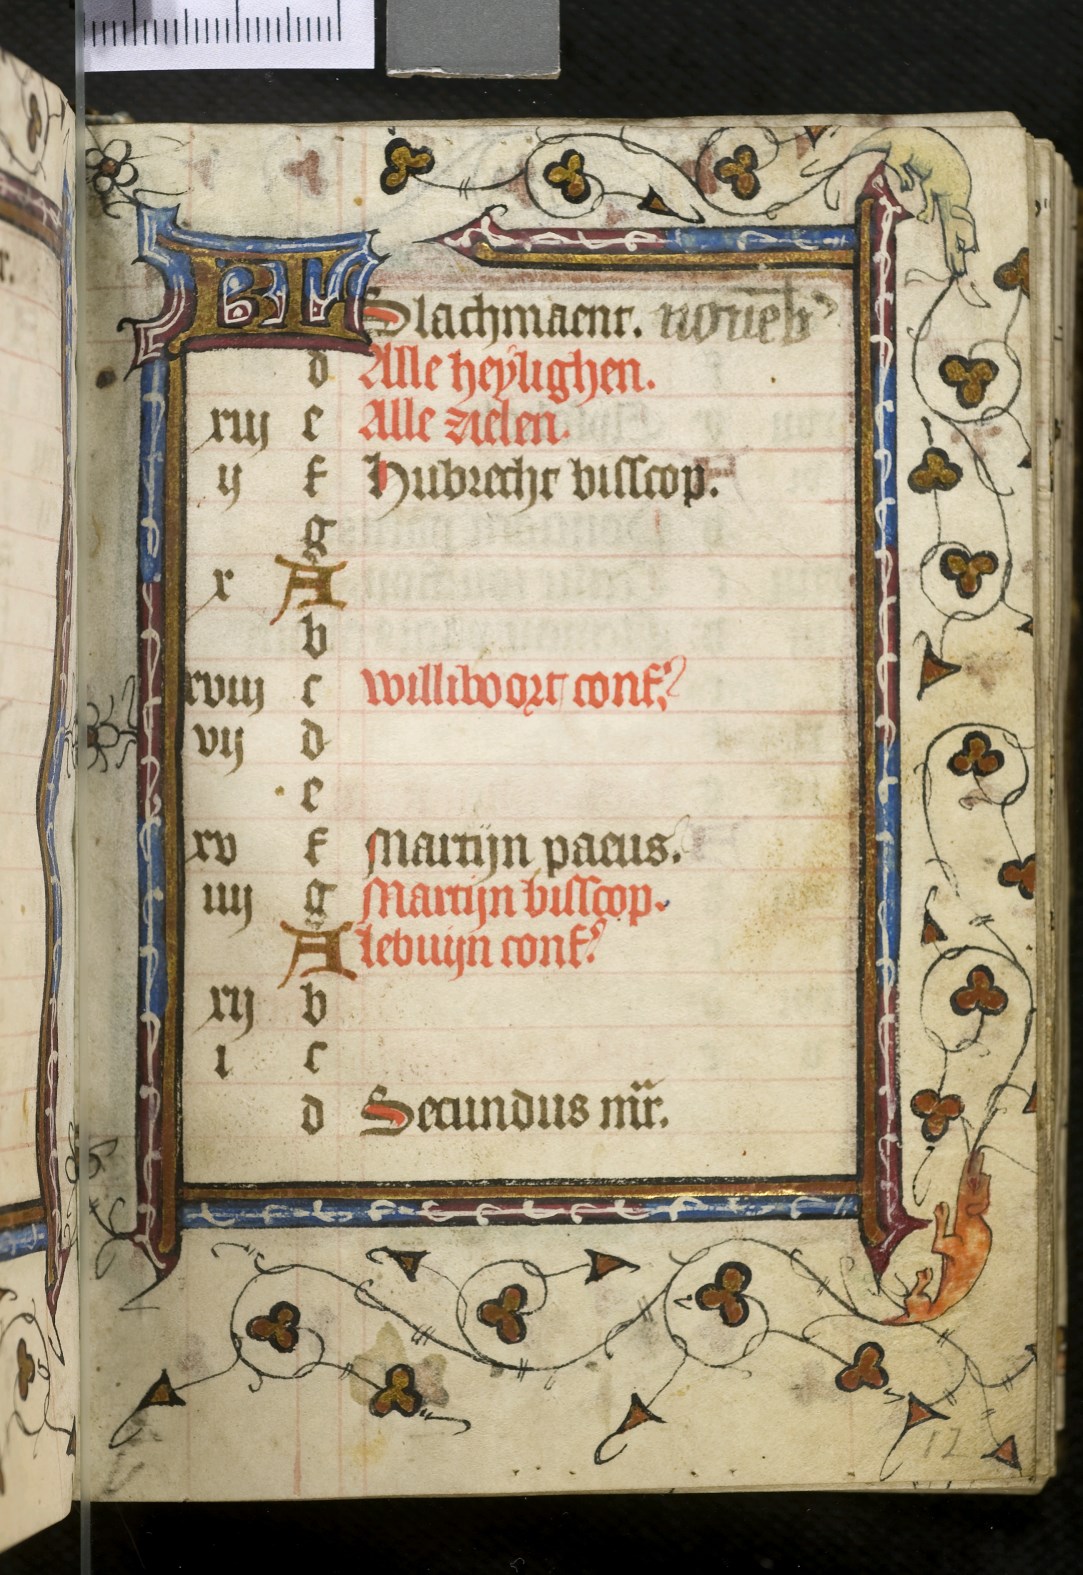 KL Slachmaent. nouēb'
d Alle heylighen.
xiij e Alle zielen.
ij f Hubrecht bisscop.
g
x A
b
xviij c Williboort conf.
vij d
e
xv f Martijn paeus.
iiij g Martijn bisscop.
A lebuijn conf.
xij b
i c
d Secundus mr.
12